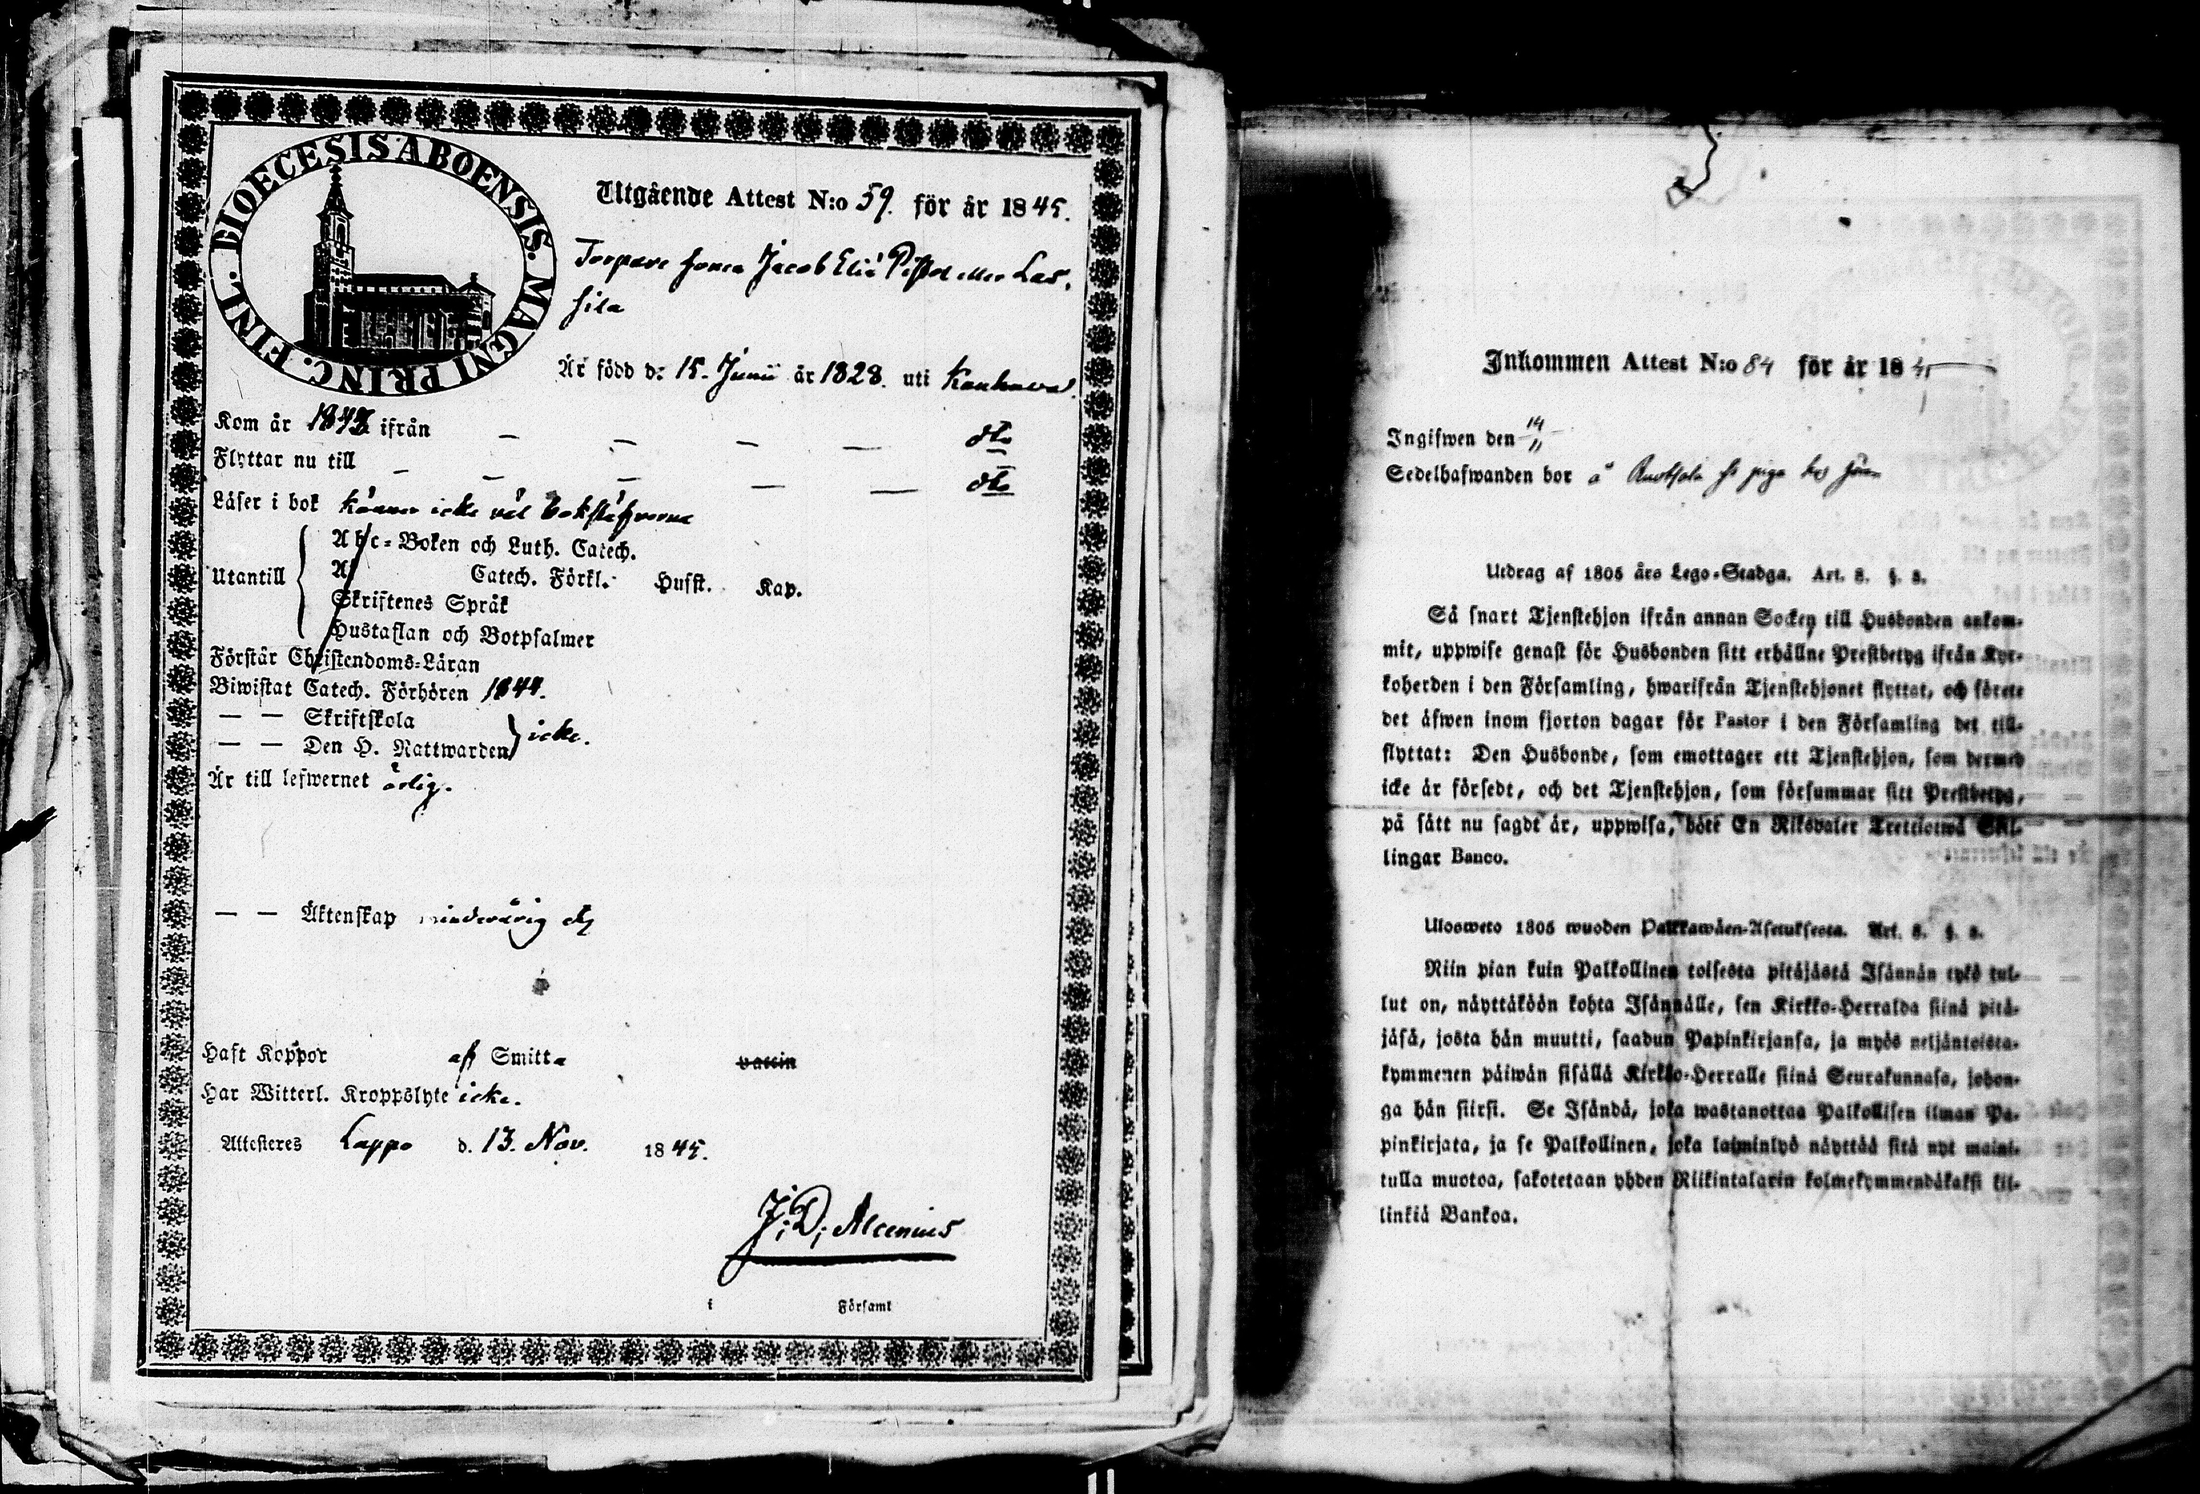 DIOECESIS ABOENSIS. MAGNI PRINC. FINL.
Utgående Attest N:o 59. för år 1845.
Torpare sonen Jacob Eliæ Pistol eller Las,
sila
Är född d: 15. Junii år 1828. uti Kauhava.
Kom år 1842 ifrån — — — — dto
Flyttar nu till — — — — — dto
Läser i bok känner icke väl bokstäfverne
Utantill
Abc-Boken och Luth. Catech.
Af Catech. Förkl. Husst. Kap.
Skriftenes Språk
Hustaflan och Botpsalmer
Förstår Christendoms-Läran
Biwistat Catech. Förhören 1844.
— — Skriftskola
— — Den H. Nattwarden icke.
Är till lefwernet ärlig.
— — Äktenskap minderårig
Haft Koppor af Smitta vaccin
Har Witterl. Kroppslyte icke.
Attesteres Lappo d. 13. Nov. 1845.
J; D; Alcenius
i Församl
Inkommen Attest N:o 84 för år 1845
Ingifwen den 14/11
Sedelhafwanden bor å piga hos
Utdrag af 1805 års Lego-Stadga. Art. 8. §. 8.
Så snart Tjenstehjon ifrån annan Socken till Husbonden ankom-
mit, uppwise genast för Husbonden sitt erhållne Prestbetyg ifrån Kyr-
koherden i den Församling, hwarifrån Tjenstehjonet flyttat, och förete
det äfwen inom fjorton dagar för Pastor i den Församling det till-
flyttat: Den Husbonde, som emottager ett Tjenstehjon, som dermed
icke är försedt, och det Tjenstehjon, som försummar sitt Prestbetyg,
på sätt nu sagdt är, uppwisa, böte En Riksdaler Trettiotwå Skil-
lingar Banco.
Ulosweto 1805 wuoden Palkkawäen-Asetuksesta. Art. 8. §. 8.
Niin pian kuin Palkollinen toisesta pitäjästä Isännän tykö tul-
lut on, näyttäköön kohta Isännälle, sen Kirkko-Herralda siinä pitä-
jäsä, josta hän muutti, saadun Papinkirjansa, ja myös neljäntoista-
kymmenen päiwän sisällä Kirkko-Herralle siinä Seurakunnasa, johon-
ga hän siirsi. Se Isändä, joka wastanottaa Palkollisen ilman Pa-
pinkirjata, ja se Palkollinen, joka laiminlyö näyttää sitä nyt maini-
tulla muotoa, sakotetaan yhden Riikintalarin kolmekymmendäkaksi kil-
linkiä Bankoa.